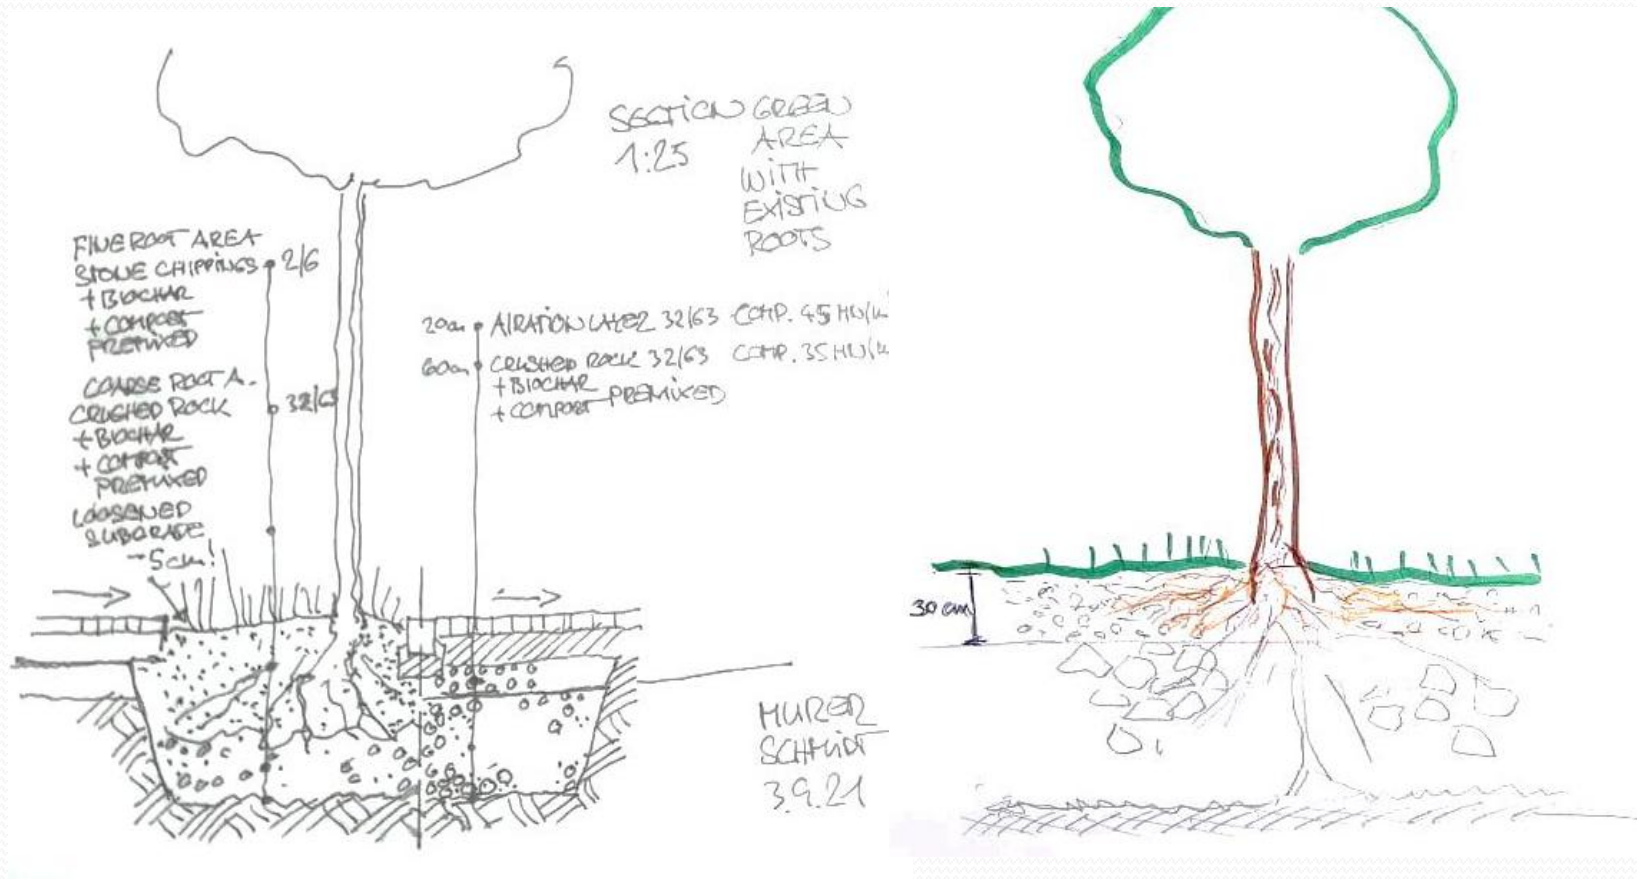 SECTION GREEN
1:25 AREA
WITH
EXISTING
ROOTS
FINE ROOT AREA
STONE CHIPPINGS 2/6
+ BIOCHAR
+ COMPOST
PREMIXED
COARSE ROOT A.
CRUSHED ROCK 32/63
+ BIOCHAR
+ COMPOST
PREMIXED
LOOSENED
SUBGRADE
~5cm!
20cm AIRATION LAYER 32/63 COMP. 45 MN/
60cm CRUSHED ROCK 32/63 COMP. 35 MN/
+ BIOCHAR
+ COMPOST PREMIXED
MURER
SCHMIDT
3.9.21
30 cm